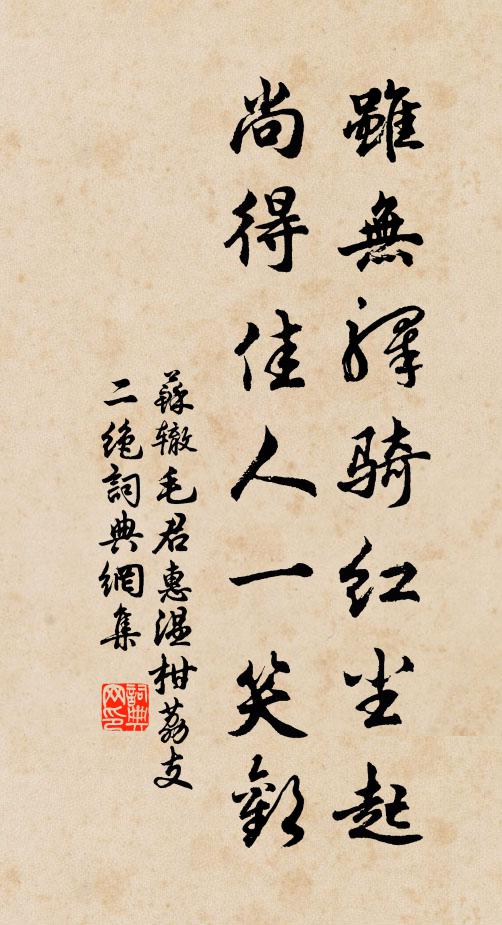 雖無驛騎紅塵起
尚得佳人一笑歡
蘇轍毛君惠溫柑荔支
二絶詞典網集
詞典网印